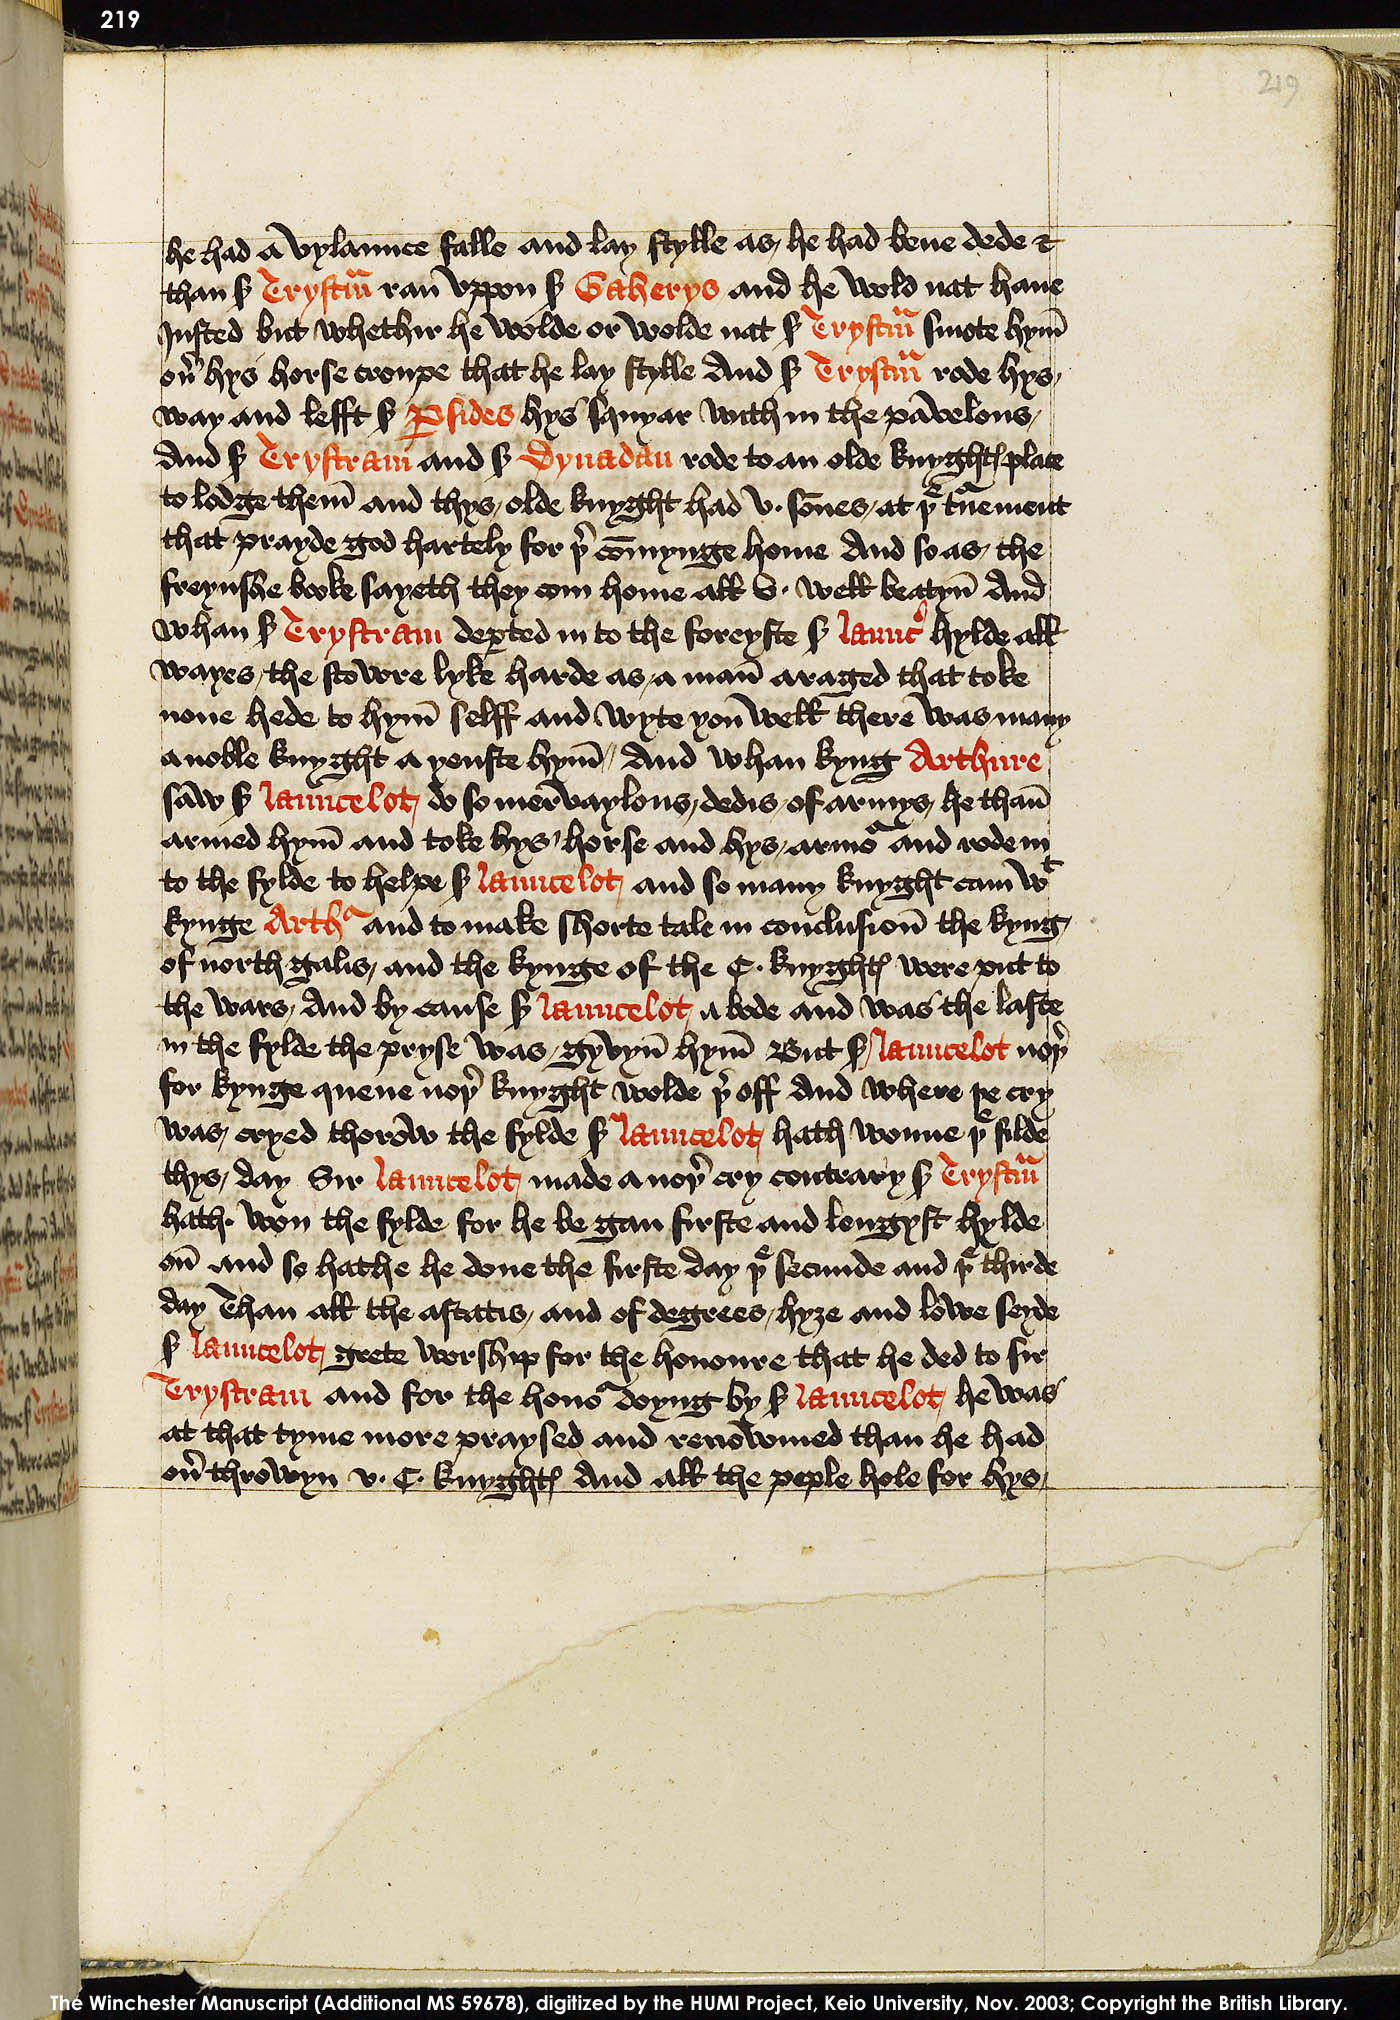 219
219
he had a vylaunce falle and lay stylle as he had bene dede &
than ẜ Trystrͣm ran̄ vppon ẜ Gaherys and he wold nat haue
Justed but whethir he wolde or wolde nat ẜ Trystrͣm smote hym̄
ou̾ hys horse croupe that he lay stylle And ẜ Trystrͣm rode hys
way and lefft ẜ ꝑsides hys squyar with in the pavelons
And ẜ Trystram and ẜ Dynadan rode to an olde knyghtꝭ place
to lodge them̄ and thys olde knyght had v. so̅nes at þͤ tᵘnement
that prayde god hartely for þ̾ co̅mynge home And so as the
freynshe booke sayeth they com home all v. well beatyn̄ And
whan ẜ Trystram deꝑted in to the foreyste ẜ launcͦ hylde all
wayes the stowre lyke harde as a man̄ araged that toke
none hede to hym̄ selff and wyte you well there was many
a noble knyght a yenste hym̄ And whan kyng Arthure
saw ẜ launcelot do so mervaylous dedis of armys he than̄
armed hym̄ and toke hys horse and hys armoᷣ and rode in
to the fylde to helpe ẜ launcelot and so many knyght cam wͭ
kynge Arthᷣ and to make shorte tale in conclusion̄ the kyng
of north galis and the kynge of the C. knyghtꝭ were put to
the wars And by cause ẜ launcelot a bode and was the laste
in the fylde the pryse was gyvyn̄ hym̄ But ẜ launcelot noþ̾
for kynge quene noþ̾ knyght wolde þ̾ off And where þe cry
was cryed thorow the fylde ẜ launcelot hath wonne þͤ filde
thys day Sir launcelot made a noþ̾ cry contrary ẜ Trystrͣm
hath won the fylde for he be gan firste and lengyst hylde
on̄ and so hathe he done the firste day þͤ secunde and þͤ thirde
day Than all the astatis and of degrees hyȝe and lowe seyde
ẜ launcelot grete worship for the honoure that he ded to sir
Trystram and for the honoᷣ doyng by ẜ launcelot he was
at that tyme more praysed and renowmed than he had
ou̾ throwyn v. C. knyghtꝭ And all the peple hole for hys
The Winchester Manuscript (Additional MS 59678), digitized by the HUMI Project, Keio University, Nov. 2003; Copyright the British Library.